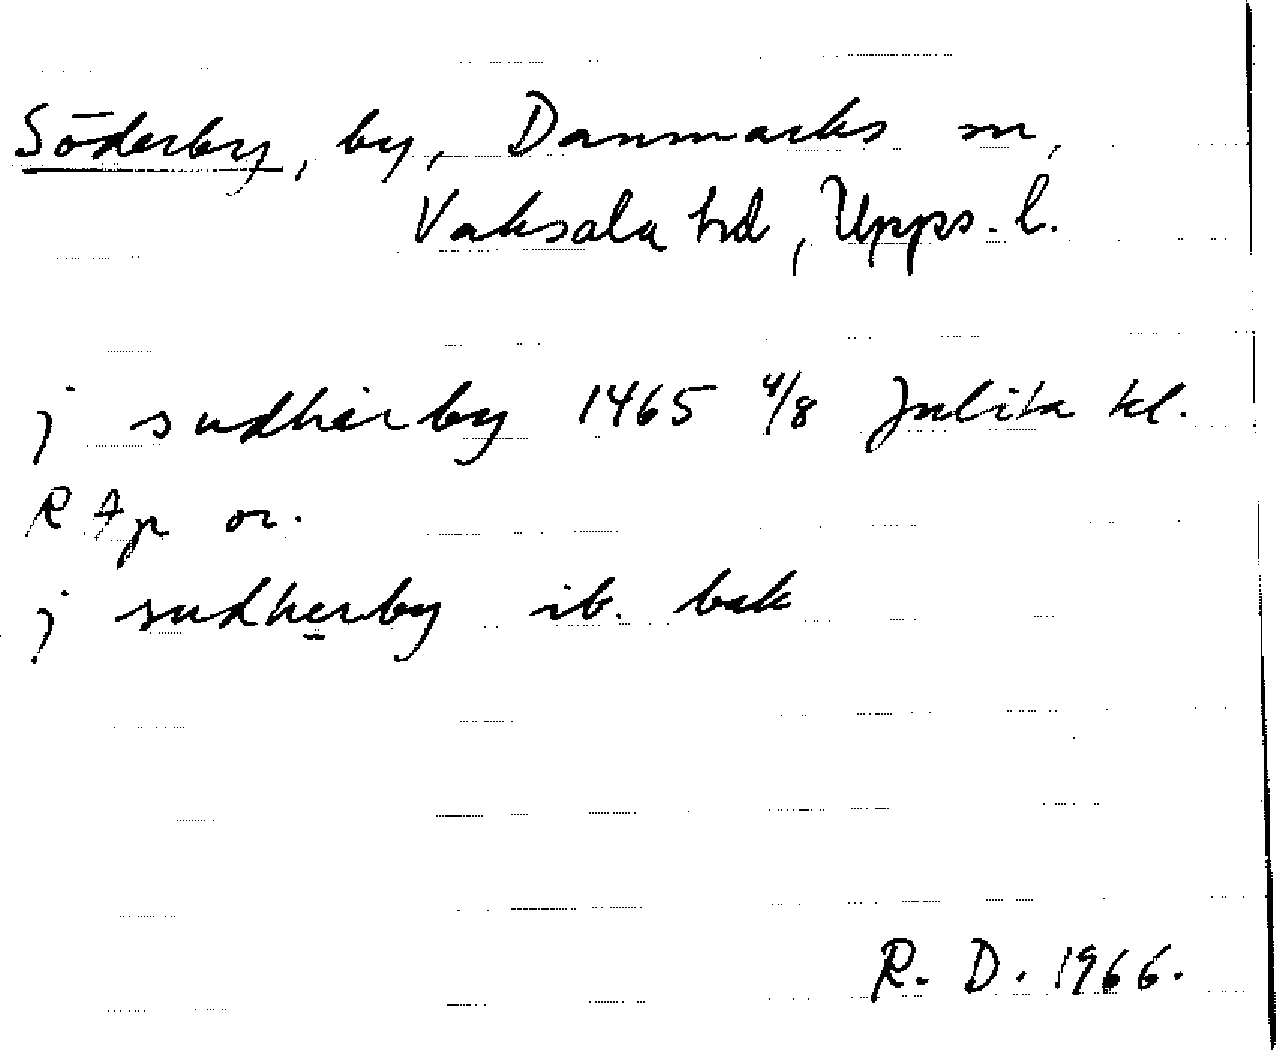 Söderby, by, Danmarks sn,
Vaksala hd, Upps. l.
j sudhėrby 1465 4/8 Julita kl.
RAp or.
j sudherby ib. bak
R. D. 1966.